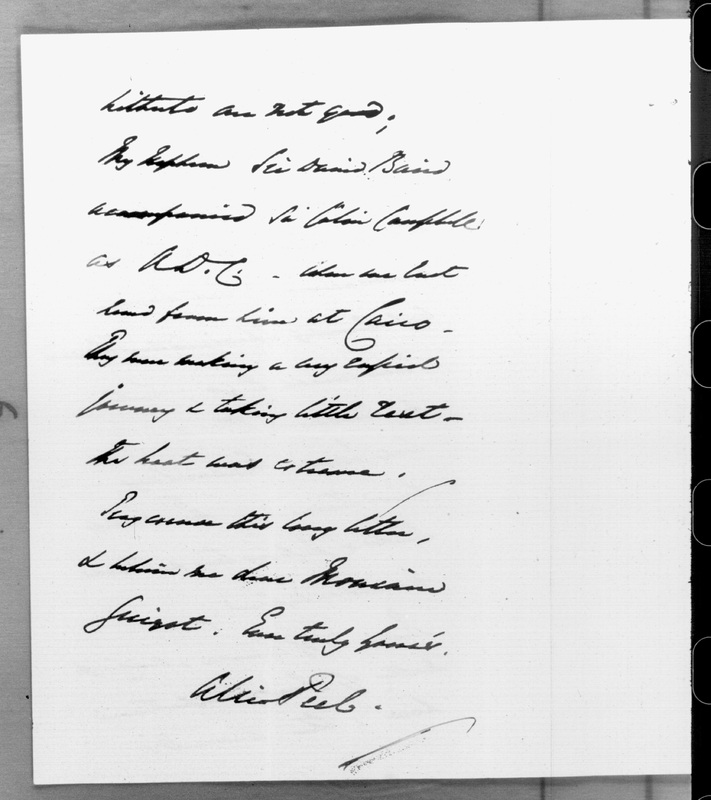 hitherto are not good;
My Nephew Sir David Baird
accompanied Sir Colin Campbell
as A.D.C. - when we last
heard from him at Cairo -
They were making a very rapid
journey & taking little rest -
The heat was extreme.
Pray excuse this long letter,
& believe me dear Monsieur
Guizot. Ever truly yours.
Peel.